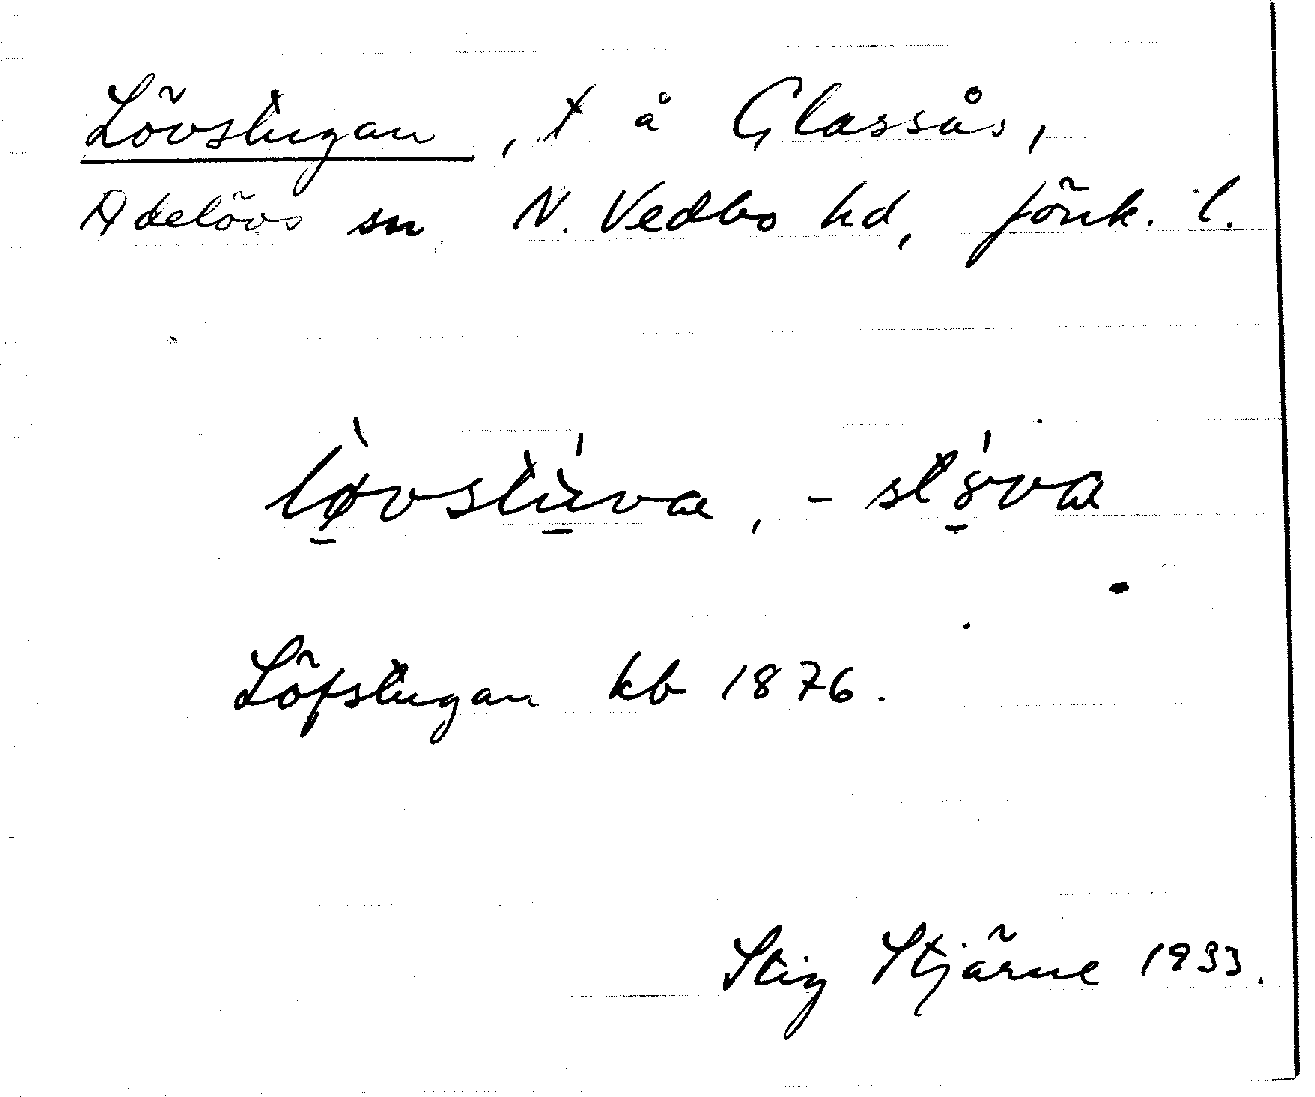 Lövstugan, t å Glassås,
Adelövs sn N. Vedbo hd, Jönk. l.
lø̱̀vstu̱̇́va, - stó̱va
Löfstugan kb 1876.
Stig Stjärne 1933.